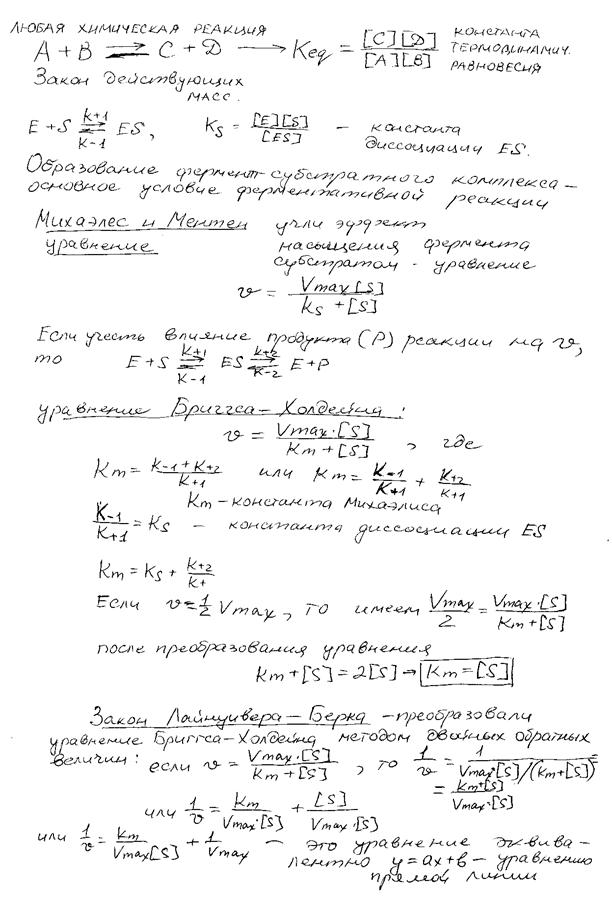 ЛЮБАЯ ХИМИЧЕСКАЯ РЕАКЦИЯ
A + B ⇌ C + D → Keq = [C][D] / [A][B] КОНСТАНТА ТЕРМОДИНАМИЧ. РАВНОВЕСИЯ
Закон действующих
масс.
E + S ⇌ ES, K+1 K-1 Ks = [E][S] / [ES] – константа
диссоциации ES.
Образование фермент-субстратного комплекса –
основное условие ферментативной реакции
Михаэлес и Ментен учли эффект
уравнение насыщения фермента
субстратом - уравнение
v = Vmax[S] / Ks + [S]
Если учесть влияние продукта (P) реакции на v,
то E + S ⇌ ES ⇌ E + P K+1 K-1 K+2 K-2
уравнение Бриггса – Холдейна:
v = Vmax·[S] / Km + [S], где
Km = K-1 + K+2 / K+1 или Km = K-1 / K+1 + K+2 / K+1
Km – константа Михаэлиса
K-1 / K+1 = Ks – константа диссоциации ES
Km = Ks + K+2 / K+
Если v = 1/2 Vmax, то имеем Vmax / 2 = Vmax·[S] / Km + [S]
после преобразования уравнения
Km + [S] = 2[S] → Km = [S]
Закон Лайнуивера – Берка – преобразовали
уравнение Бриггса – Холдейна методом двойных обратных
величин: если v = Vmax·[S] / Km + [S], то 1/v = 1 / Vmax·[S]/(Km+[S]) =
= Km+[S] / Vmax·[S]
или 1/v = Km / Vmax·[S] + [S] / Vmax·[S]
или 1/v = Km / Vmax[S] + 1 / Vmax – это уравнение эквива-
лентно y = ax + b – уравнению
прямой линии